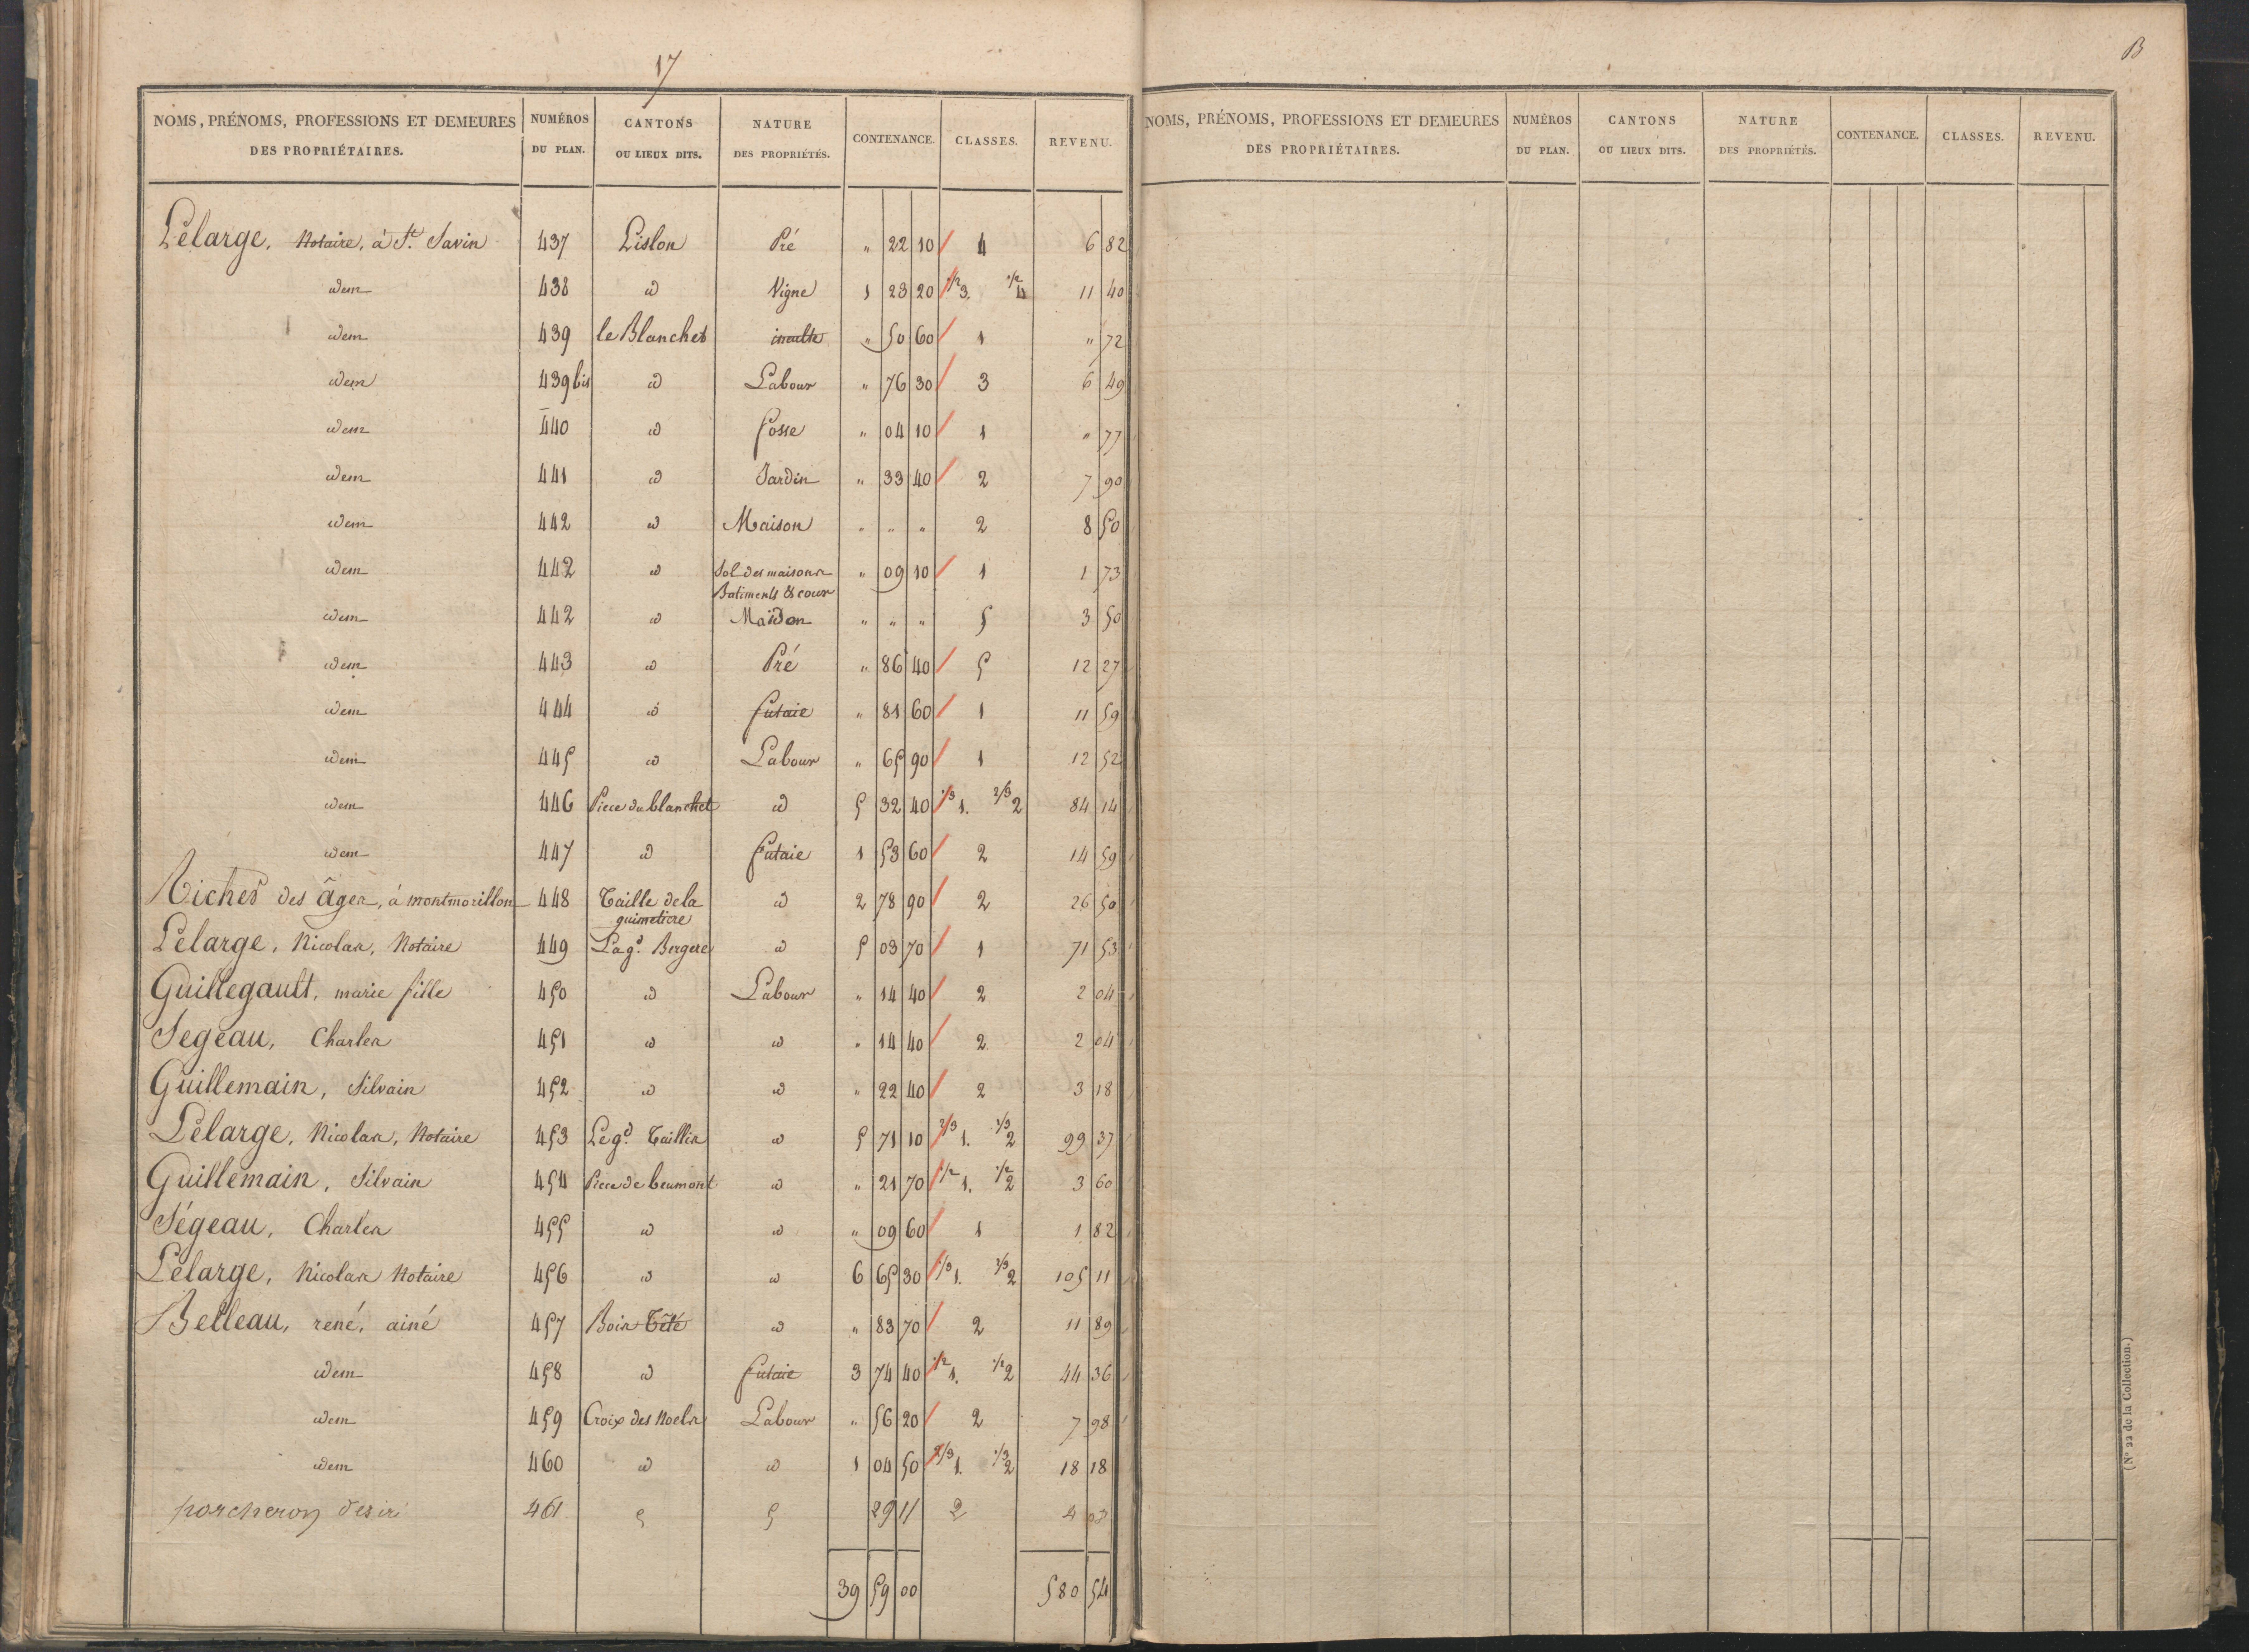 17
NOMS, PRÉNOMS, PROFESSIONS ET DEMEURES DES PROPRIÉTAIRES. NUMÉROS DU PLAN. CANTONS OU LIEUX DITS. NATURE DES PROPRIÉTÉS. CONTENANCE. CLASSES. REVENU.
Lelarge, Notaire, à St. Savin 437 Lislon Pré " 22 10 4 6 82
idem 438 id Vigne 1 23 20 1/2 3. 1/2 4 11 40
idem 439 le Blanchet inculte " 50 60 1 " 72
idem 439 bis id Labour " 76 30 3 6 49
idem 440 id fosse " 04 10 1 " 77
idem 441 id Jardin " 33 40 2 7 90
idem 442 id Maison " " " 2 8 50
idem 442 id Sol des maisons " 09 10 1 1 73
Batiments & cour
idem 442 id Maison " " " 5 3 50
idem 443 id Pré " 86 40 5 12 27
idem 444 id futaie " 81 60 1 11 59
idem 445 id Labour " 65 90 1 12 52
idem 446 Piece du blanchet id 5 32 40 1/3 1. 2/3 2 84 14
idem 447 id futaie 1 53 60 2 14 59
Riches des âges, à montmorillon 448 Taille de la id 2 78 90 2 26 50
guimetiere
Lelarge, Nicolas, Notaire 449 La gd. Bergere id 5 03 70 1 71 53
Guillegault, marie fille 450 id Labour " 14 40 2 2 04
Segeau, Charles 451 id id " 14 40 2 2 04
Guillemain, Silvain 452 id id " 22 40 2 3 18
Lelarge, Nicolas, Notaire 453 Le gd. Taillis id 5 71 10 2/3 1. 1/3 2 99 37
Guillemain, Silvain 454 Piece de beumont id " 21 70 1/2 1. 1/2 2 3 60
Ségeau, Charles 455 id id " 09 60 1 1 82
Lelarge, Nicolas Notaire 456 id id 6 65 30 1/3 1. 2/3 2 105 11
Belleau, rené, ainé 457 Bois Têté id " 83 70 2 11 89
idem 458 id futaie 3 74 40 1/2 1. 1/2 2 44 36
idem 459 Croix des Noels Labour " 56 20 2 7 98
idem 460 id id 1 04 50 2/3 1. 1/3 2 18 18
porcheron desiré 461 29 11 2 4 03
39 59 00 580 54
NOMS, PRÉNOMS, PROFESSIONS ET DEMEURES DES PROPRIÉTAIRES. NUMÉROS DU PLAN. CANTONS OU LIEUX DITS. NATURE DES PROPRIÉTÉS. CONTENANCE. CLASSES. REVENU.
B
(N° 22 de la Collection.)